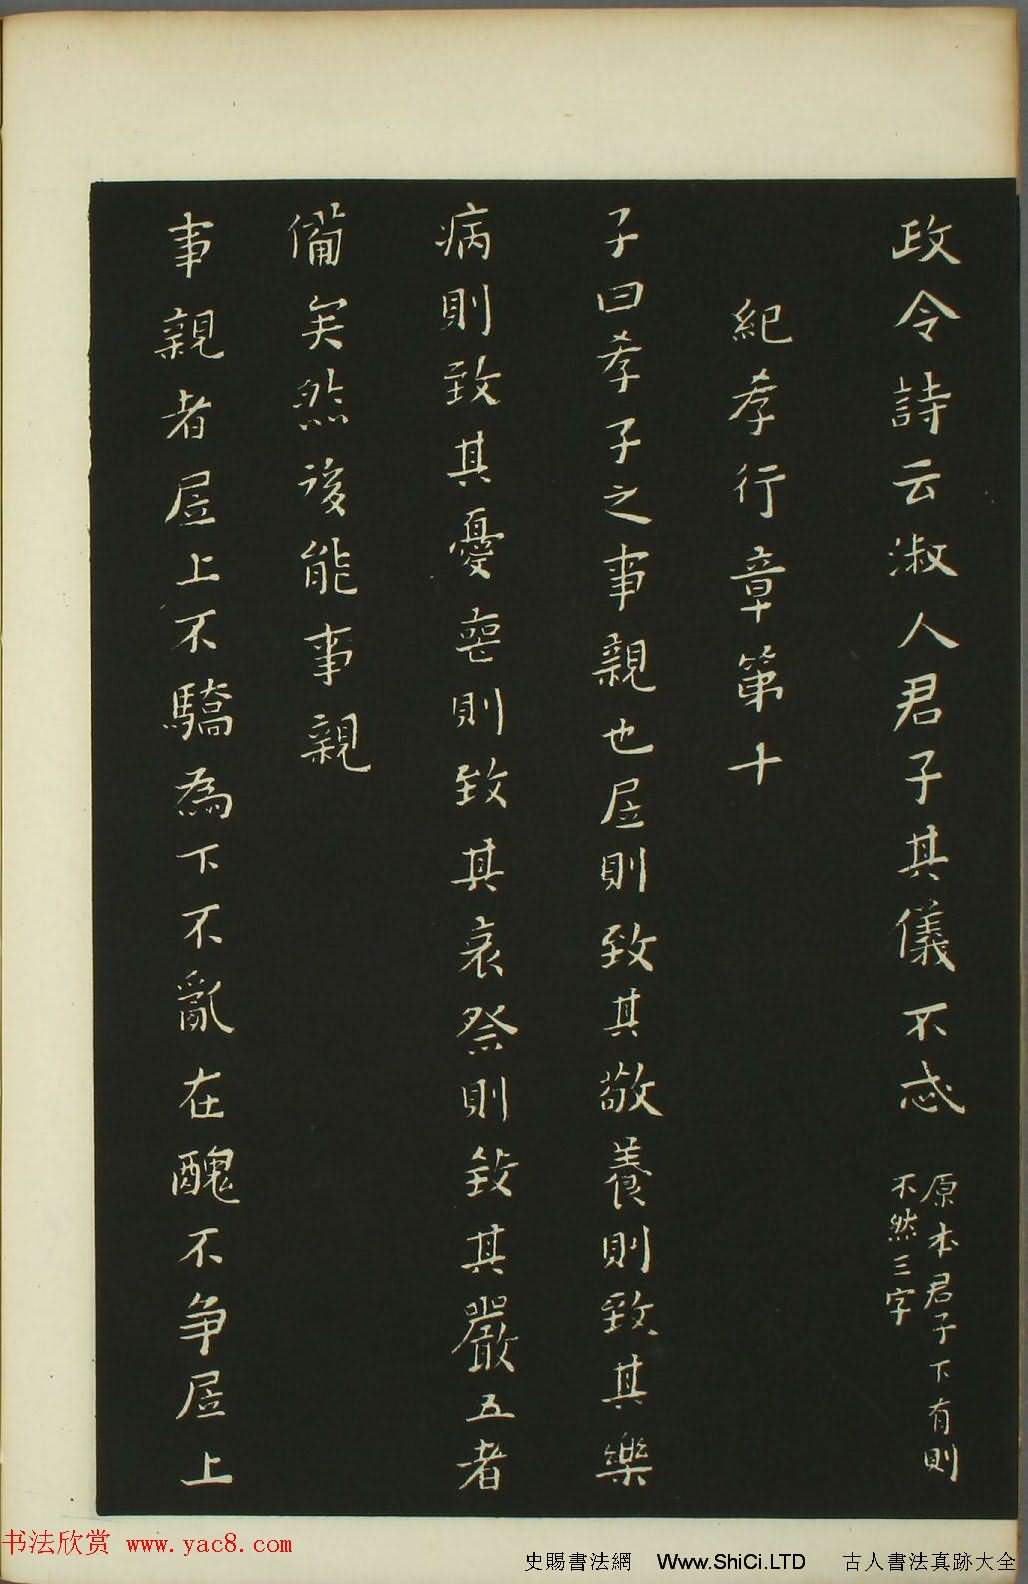 政令詩云淑人君子其儀不忒
原本君子下有則
不然三字
紀孝行章第十
子曰孝子之事親也居則致其敬養則致其樂
病則致其憂喪則致其哀祭則致其嚴五者
備矣然後能事親
事親者居上不驕為下不亂在醜不争居上
书法欣赏 www.yac8.com
史賜書法網 Www.ShiCi.LTD 古人書法真跡大全